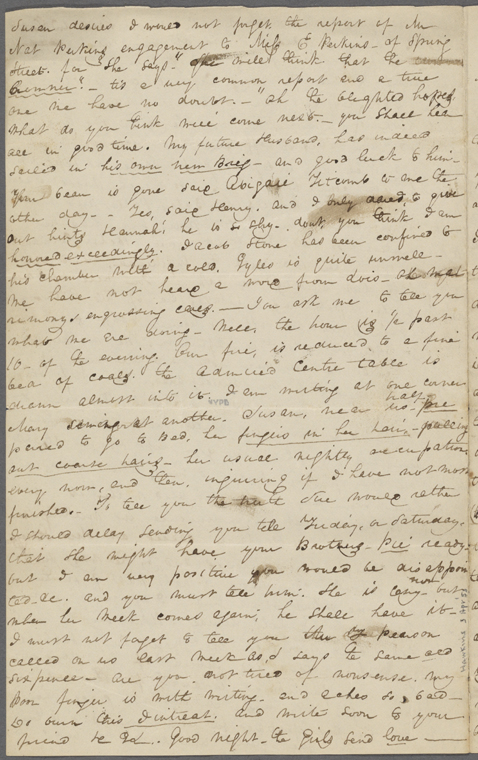 Susan desires I would not forget the report of Mr
Nat Perkins engagement to Miss E Perkins - of Spring
Street. for "She says" one would think that the
" - tis a very common report and a true
one we have no doubt. - "ah the blighted hopes,
what do you think will come next. - you shall hear
all in good time. My future Husband, has indeed
sailed in his own new Brig - and good luck to him -
Your beau is gone said Abigail Titcomb to me the
other day - Yes, said Henry, and I only to give
out hints Hannah; he is so shy - dont you think I am
honored exceedingly. Jacob Stone has been confined to
his chamber with a cold. Tyles is quite unwell -
We have not heard a word from
engrossing cares. - You ask me to tell you
what we are doing - Well, the hour is 1/2 past
10 - of the evening. Our fire, is reduced to a fine
bed of coals. the admired Centre table is
drawn almost into it. I am writing at one corner
Mary sewing at another. Susan, near us half pre
pared to go to bed, her fingers in her hair - pulling
out coarse hairs - her usual nightly occupation
every now, and then, inquiring if I have not most
finished. - To tell you the truth she would rather
I should delay sending you till Friday, or Saturday,
that she might have your Brothers - Pie ready -
but I am very positive you would be disappoin
ted. &c. and you must tell him. She is lazy - now but
when her week comes again; he shall have it -
I must not forget to tell you the person
called on us last week as, I says the same old
sixpence - are you not tired of nonsense. My
Poor finger is with writing - and aches so bad -
Do burn this I intreat. and write soon to your
friend &c &c.. Good night - the Girls send love -